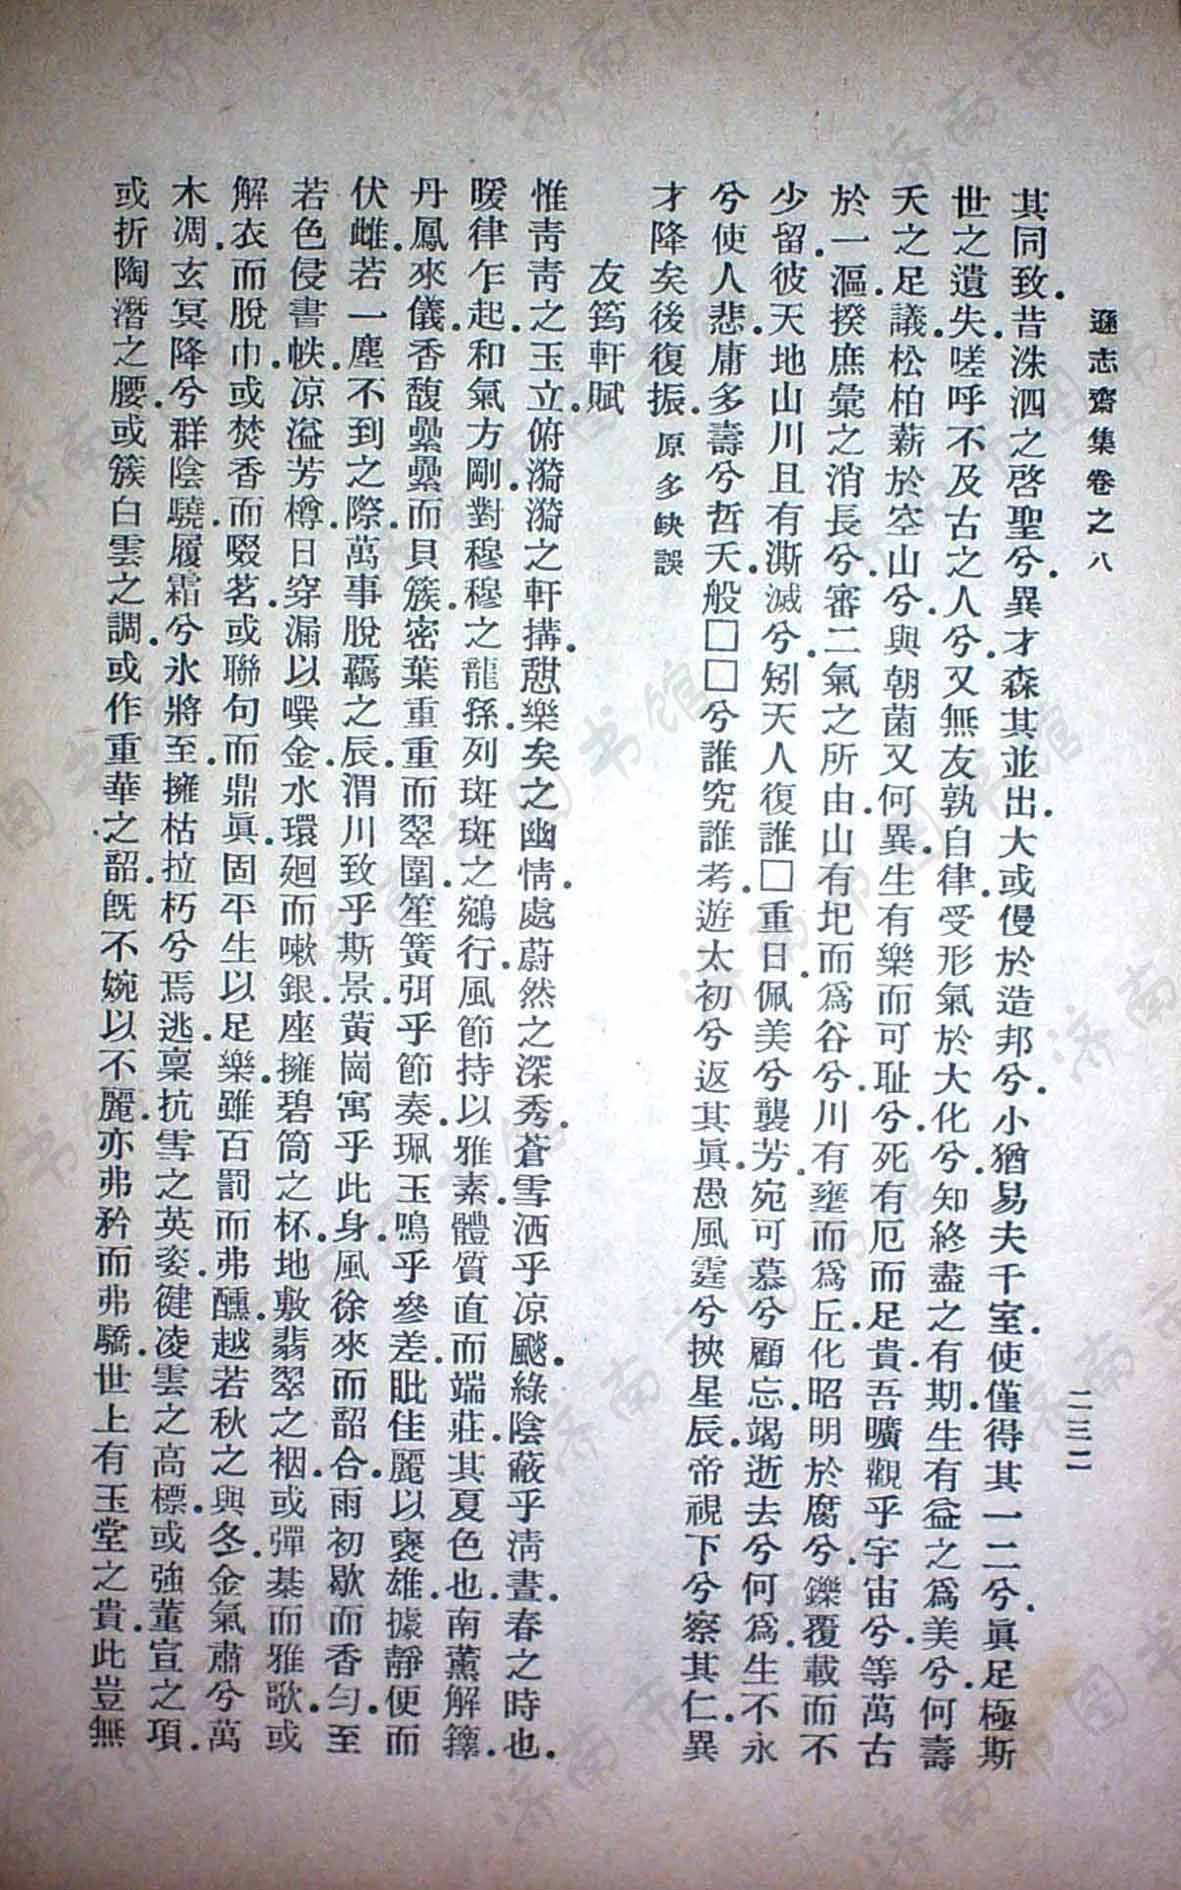 遜志齋集卷之八
二三二
其同致.昔洙泗之啓聖兮.異才森其並出.大或僈於造邦兮.小猶易夫千室.使僅得其一二兮.眞足極斯
世之遺失.嗟呼不及古之人兮.又無友孰自律.受形氣於大化兮.知終盡之有期.生有益之爲美兮.何壽
夭之足議.松柏薪於空山兮.與朝菌又何異.生有樂而可耻兮.死有厄而足貴.吾曠觀乎宇宙兮.等萬古
於一漚.揆庶彙之消長兮.審二氣之所由.山有圮而爲谷兮.川有壅而爲丘.化昭明於腐兮.鑠覆載而不
少留.彼天地山川且有澌滅兮.矧天人復誰□重.日佩美兮襲芳.宛可慕兮顧忘.竭逝去兮何爲.生不永
兮使人悲.庸多壽兮哲夭.般□□兮誰究誰考.遊太初兮返其眞.愚風霆兮挾星辰.帝視下兮察其仁.異
才降矣後復振.原多缺誤
友筠軒賦
惟靑靑之玉立.俯漪漪之軒搆.憇樂矣之幽情.處蔚然之深秀.蒼雪洒乎凉飈.綠陰蔽乎淸晝.春之時也.
暖律乍起.和氣方剛.對穆穆之龍孫.列斑斑之鵷行.風節持以雅素.體質直而端莊.其夏色也.南薰解籜.
丹鳳來儀.香馥纍纍而貝簇.密葉重重而翠圍.笙簧弭乎節奏.珮玉鳴乎參差.毗佳麗以褒雄.據靜便而
伏雌.若一塵不到之際.萬事脫羈之辰.渭川致乎斯景.黃崗寓乎此身.風徐來而韶合.雨初歇而香勻.至
若色侵書帙.凉溢芳樽.日穿漏以噀金.水環廻而嗽銀.座擁碧筒之杯.地敷翡翠之裀.或彈棊而雅歌.或
解衣而脫巾.或焚香而啜茗.或聯句而鼎眞.固平生以足樂.雖百罰而弗醺.越若秋之與冬.金氣肅兮萬
木凋.玄冥降兮群陰驍.履霜兮氷將至.擁枯拉朽兮焉逃.稟抗雪之英姿.徤凌雲之高標.或強董宣之項.
或折陶潛之腰.或簇白雲之調.或作重華之韶.旣不婉以不麗.亦弗矜而弗驕.世上有玉堂之貴.此豈無